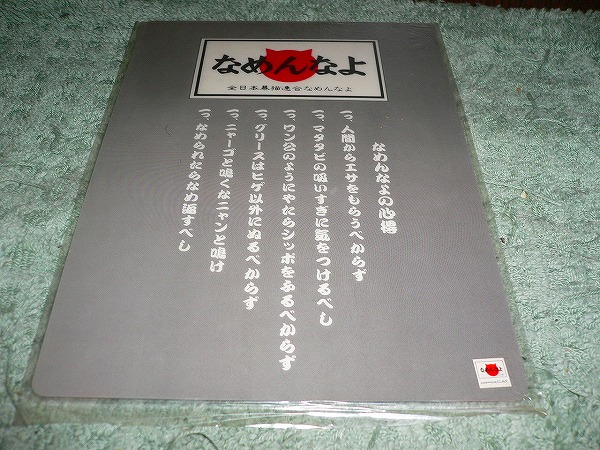 なめんなよ
全日本暴猫連合なめんなよ
なめんなよの心得
一、人間からエサをもらうべからず
一、マタタビの吸いすぎに気をつけるべし
一、ワン公のようにやたらシッポをふるべからず
一、グリースはヒゲ以外にぬるべからず
一、ニャーゴと鳴くなニャンと鳴け
一、なめられたらなめ返すべし
なめんなよ